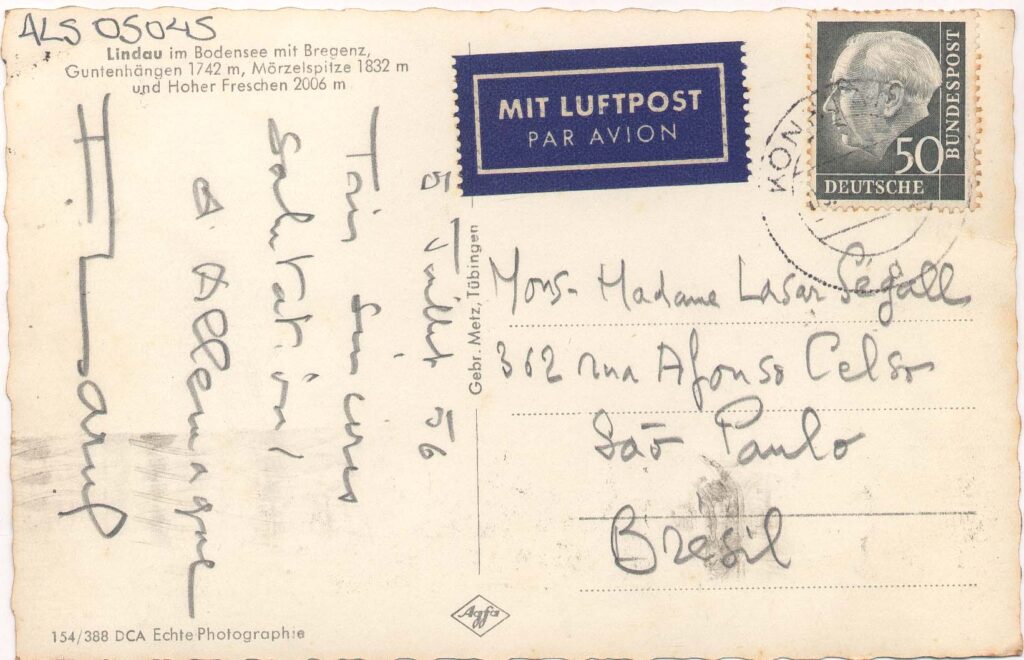 ALS 05045
Lindau im Bodensee mit Bregenz,
Guntenhängen 1742 m, Mörzelspitze 1832 m
und Hoher Freschen 2006 m
MIT LUFTPOST
PAR AVION
50
DEUTSCHE
BUNDESPOST
Juillet 56
sincères
salutations
d'Allemagne
Gebr. Metz, Tübingen
Mons- Madame Lasar Ségall
362 rua Afonso Celso
São Paulo
Bresil
154/388 DCA Echte Photographie
Agfa